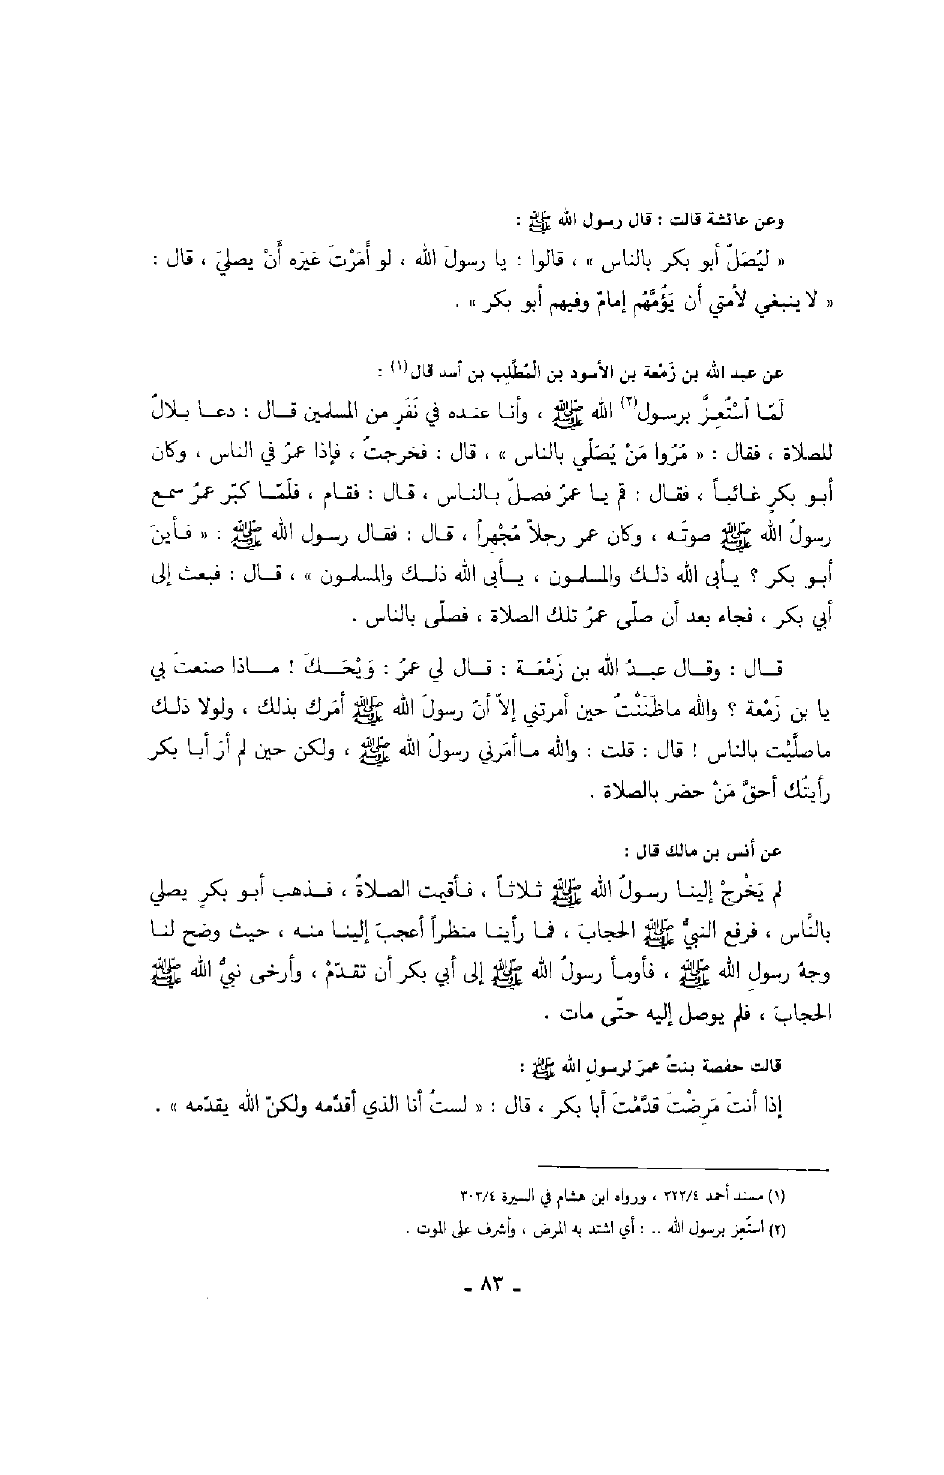 وعن عائشة قالت : قال رسول الله ﷺ :
« ليُصَلِّ أبو بكر بالناس » ، قالوا : يا رسولَ الله ، لو أَمَرْتَ غيَره أَنْ يصليَ ، قال :
« لا ينبغي لأمتي أن يَؤُمَّهُم إمامٌ وفيهم أبو بكر » .
عن عبد الله بن زَمْعة بن الأسود بن المُطَّلِب بن أسد قال(١) :
لَمّا اُسْتُعِزَّ برسول(٢) الله ﷺ ، وأنا عنده في نَفَرٍ من المسلمين قال : دعا بلالٌ
للصلاة ، فقال : « مُرُوا مَنْ يُصَلّي بالناس » ، قال : فخرجتُ ، فإذا عمرُ في الناس ، وكان
أبو بكرٍ غائباً ، فقال : قم يا عمرُ فصلِّ بالناس ، قال : فقام ، فلَمّا كبّر عمرُ سمع
رسولُ الله ﷺ صوتَه ، وكان عمر رجلاً مُجْهِراً ، قال : فقال رسول الله ﷺ : « فأينَ
أبو بكر ؟ يأبى الله ذلك والمسلمون ، يأبى الله ذلك والمسلمون » ، قال : فبعث إلى
أبي بكر ، فجاء بعد أن صلّى عمرُ تلك الصلاة ، فصلّى بالناس .
قال : وقال عبدُ الله بن زَمْعَة : قال لي عمرُ : وَيْحَكَ ! ماذا صنعتَ بي
يا بن زَمْعة ؟ والله ماظَنَنْتُ حين أمرتني إلاّ أنّ رسولَ الله ﷺ أمَرك بذلك ، ولولا ذلك
ماصلَّيْت بالناس ! قال : قلت : والله ماأمَرني رسولُ الله ﷺ ، ولكن حين لم أرَ أبا بكر
رأيتُك أحقَّ مَنْ حضر بالصلاة .
عن أنس بن مالك قال :
لم يَخْرجْ إلينا رسولُ الله ﷺ ثلاثاً ، فأقيمت الصلاةُ ، فذهب أبو بكرٍ يصلي
بالنَّاس ، فرفع النبيُّ ﷺ الحجابَ ، فما رأينا منظراً أعجبَ إلينا منه ، حيث وضح لنا
وجهُ رسولِ الله ﷺ ، فأومأ رسولُ الله ﷺ إلى أبي بكر أن تقدّمْ ، وأرخى نبيُّ الله ﷺ
الحجابَ ، فلم يوصل إليه حتّى مات .
قالت حفصة بنتُ عمرَ لرسولِ الله ﷺ :
إذا أنتَ مَرِضْتَ قدَّمْتَ أبا بكر ، قال : « لستُ أنا الذي أقدّمه ولكنّ الله يقدّمه » .
(١) مسند أحمد ٣٢٢/٤ ، ورواه ابن هشام في السيرة ٣٠٣/٤
(٢) استُعِز برسول الله .. : أي اشتد به المرض ، وأشرف على الموت .
ـ ٨٣ ـ